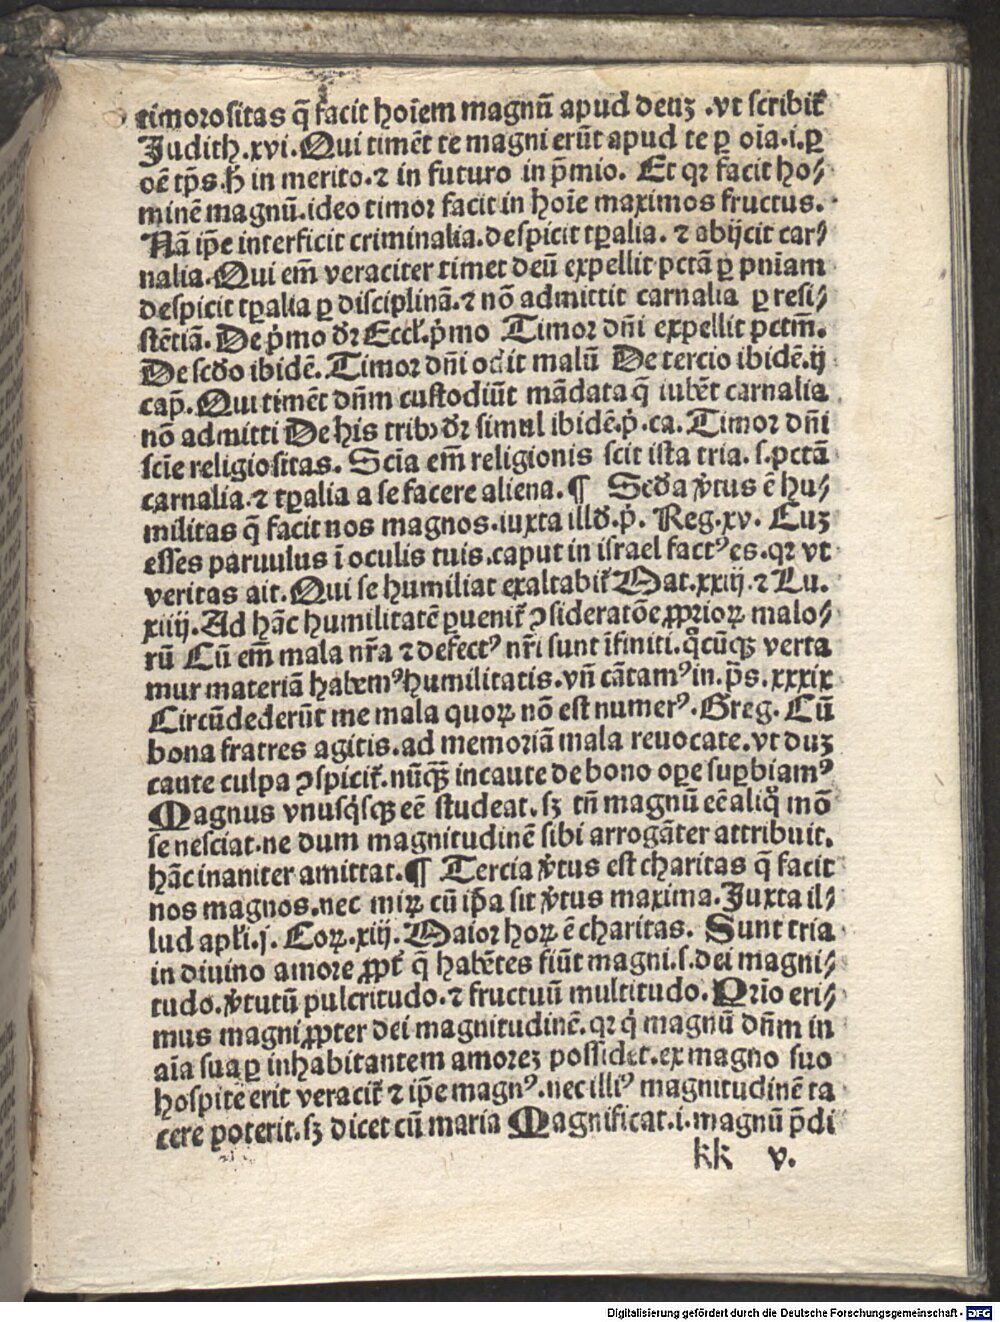 timorositas q̃ facit hoīem magnū apud deuʒ .vt scribit᷑
Judith.xvi.Qui timēt te magni erūt apud te ꝑ oīa.i.ꝑ
oē tp̄s.h̄ in merito.⁊ in futuro in p̄mio. Et qꝛ facit ho⸗
minē magnū.ideo timoꝛ facit in hoīe maximos fructus.
Nā ip̄e interficit criminalia.despicit tꝑalia. ⁊ abijcit car⸗
nalia.Qui em̄ veraciter timet deū expellit pctā ꝑ pn̄iam
despicit tꝑalia ꝑ disciplinā.⁊ nō admittit carnalia ꝑ resi⸗
stētiā. De p̄mo dꝛ Eccl̄.p̄mo Timoꝛ dn̄i expellit pctm̄.
De scd̄o ibidē. Timoꝛ dn̄i odit malū De tercio ibidē.ij
cap̄. Qui timēt dn̄m custodiūt mādata q̄ iubēt carnalia
nō admitti De his tribꝫ dꝛ simul ibidē.p̄.ca. Timoꝛ dn̄i
scīe religiositas. Scīa em̄ religionis scit ista tria. s.pctā
carnalia.⁊ tꝑalia a se facere aliena.¶ Scd̄a v̄tus ē hu⸗
militas q̄ facit nos magnos.iuxta illd̄.p̄. Reg.xv. Cuʒ
esses paruulus ī oculis tuis.caput in israel factꝰ es.qꝛ vt
veritas ait. Qui se humiliat exaltabit᷑ Mat.xxiij.⁊ Lu.
xiiij. Ad hāc humilitatē ꝑuenit᷑ ꝯsideratōe ꝓprioꝝ malo⸗
rū Cū em̄ mala nr̄a ⁊ defectꝰ nr̄i sunt īfiniti.qͦcūqꝫ verta
mur materiā habemꝰ humilitatis.vn̄ cātamꝰ in.p̄s.xxxix
Circūdederūt me mala quoꝝ nō est numerꝰ.Greg. Cū
bona fratres agitis.ad memoꝛiā mala reuocate.vt duʒ
caute culpa ꝯspicit᷑.nūqꝫ̄ incaute de bono oꝑe suꝑbiamꝰ
Magnus vnusqͥsqꝫ eē studeat. sʒ tn̄ magnū eē aliqͦ mō
se nesciat.ne dum magnitudinē sibi arrogāter attribuit.
hāc inaniter amittat.¶ Tercia v̄tus est charitas q̄ facit
nos magnos.nec miꝝ cū ip̄a sit v̄tus maxima.Juxta il⸗
lud apl̄i.j. Coꝝ.xiij. Maioꝛ hoꝝ ē charitas. Sunt tria
in diuino amore ꝓpt᷑ q̄ habētes fiūt magni.s.dei magni⸗
tudo.v̄tutū pulcritudo.⁊ fructuū multitudo. Prīo eri⸗
mus magni ꝓpter dei magnitudinē.qꝛ qͥ magnū dn̄m in
aīa sua ꝑ inhabitantem amoreʒ possidet.ex magno suo
hospite erit veracit᷑ ⁊ ip̄e magnꝰ.nec illiꝰ magnitudinē ta
cere poterit.sʒ dicet cū maria Magnificat.i.magnū p̄di
kk v.
Digitalisierung gefördert durch die Deutsche Forschungsgemeinschaft - DFG